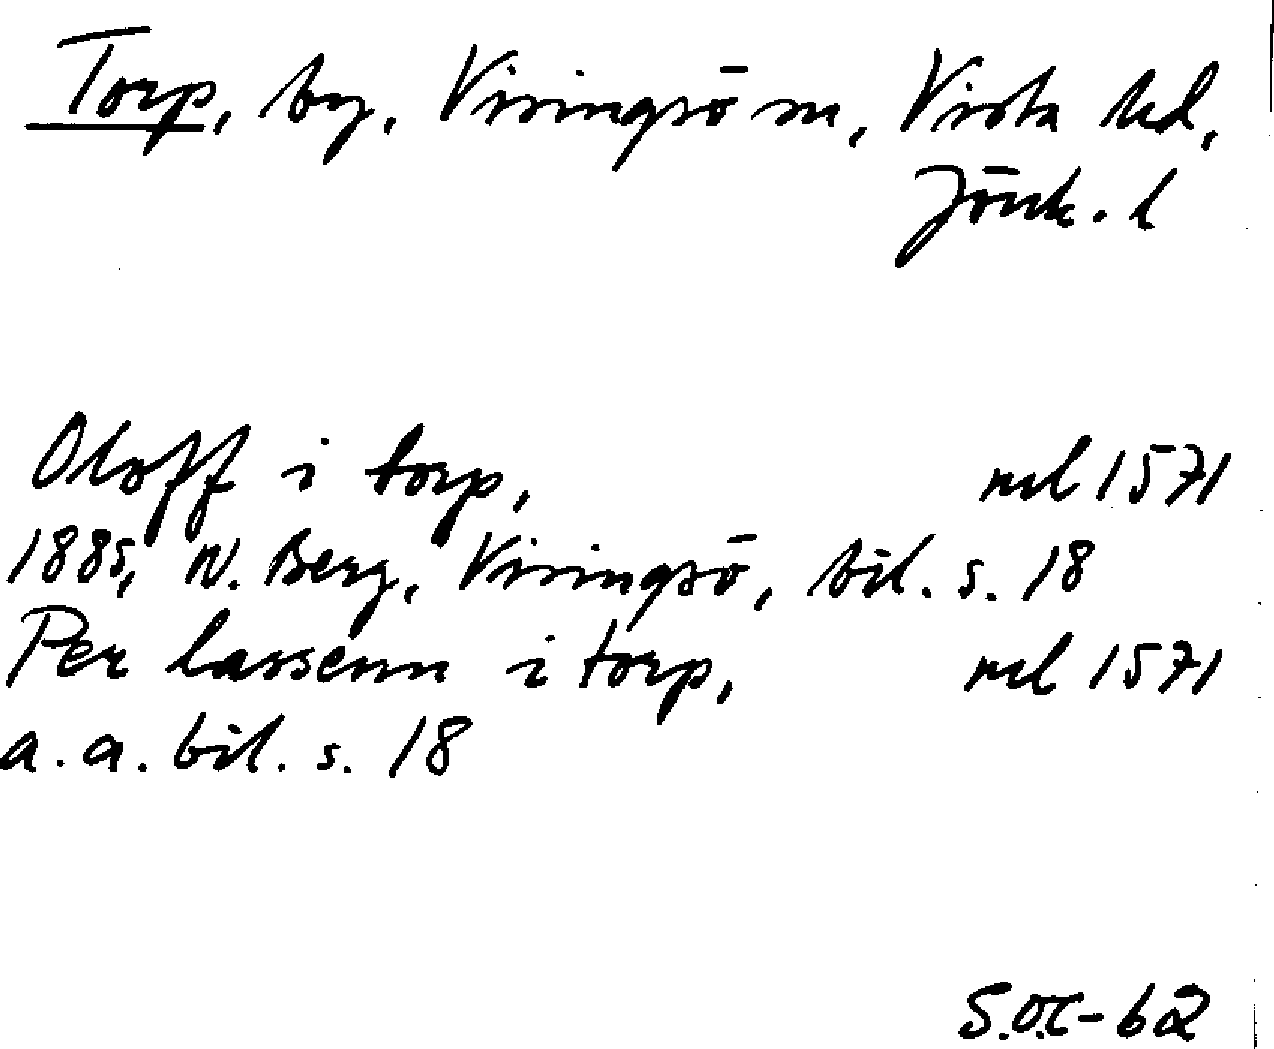 Torp, by, Visingsö sn, Vista hd,
Jönk. l
Oloff i torp, ml 1571
1885, W. Berg, Visingsö, bil. s. 18
Per lassenn i torp, ml 1571
a. a. bil. s. 18
S.O.C-62